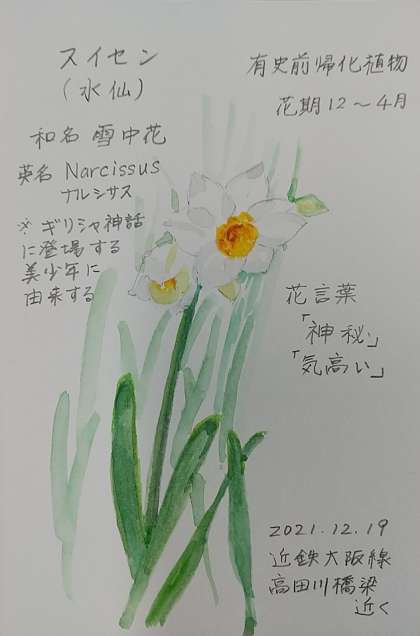 スイセン
(水仙)
和名 雪中花
英名 Narcissus
ナルシサス
※ギリシャ神話
に登場する
美少年に
由来する
有史前帰化植物
花期12～4月
花言葉
「神秘」
「気高い」
2021.12.19
近鉄大阪線
高田川橋梁
近く